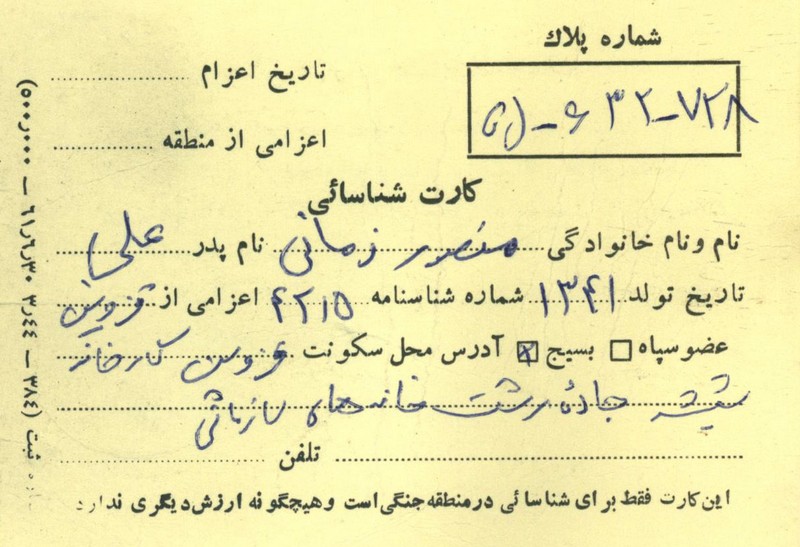 شماره پلاک
تاریخ اعزام
۷۲۸-۶۳۲
اعزامی از منطقه
کارت شناسائی
نام و نام خانوادگی منصور زمانی نام پدر علی
تاریخ تولد ۱۳۴۱ شماره شناسنامه ۴۲۱۵ اعزامی از قزوین
عضو سپاه بسیج آدرس محل سکونت قزوین کارخانه
شیشه جاده رشت خانه های سازمانی
تلفن
این کارت فقط برای شناسائی در منطقه جنگی است و هیچگونه ارزش دیگری ندارد
ثبت (۳۸۴ – ۳٫۴۴ ۶۱٫۶٫۳۰ – ۵۰۰٫۰۰۰)